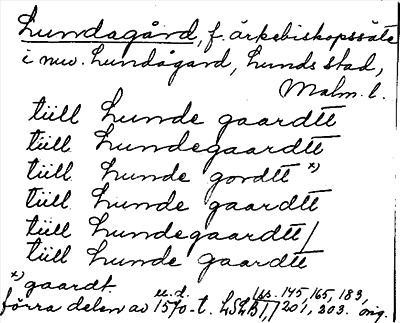 Lundagård, f. ärkebiskopssäte
i nuv. Lundagård, Lunds stad,
Malm. l.
tiill Lunde gaardtt
tiill Lundegaardtt
tiill Lunde gordtt x)
tiill Lunde gaardtt
tiill Lundegaardtt/
tiill Lunde gaardtt
x) gaardt.
u. d. Iss. 145, 165, 183,
förra delen av 1570-t. LSLB II 201, 203. orig.